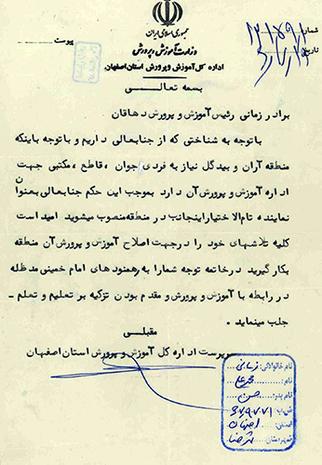 جمهوری اسلامی ایران
وزارت آموزش و پرورش
اداره کل آموزش و پرورش استان اصفهان
شماره
تاریخ
پیوست
بسمه تعالی
برادر زمانی رئیس آموزش و پرورش دهاقان
باتوجه به شناختی که از جنابعالی داریم و باتوجه باینکه
منطقه آران و بیدگل نیاز به فردی جوان ، قاطع ، مکتبی جهت
اداره آموزش و پرورش آن دارد بموجب این حکم جنابعالی بعنوان
نماینده تام الاختیار اینجانب در منطقه منصوب میشوید امید است
کلیه تلاشهای خود را در جهت اصلاح آموزش و پرورش آن منطقه
بکار گیرید در خاتمه توجه شما را به رهنمودهای امام خمینی مدظله
در رابطه با آموزش و پرورش و مقدم بودن تزکیه بر تعلیم و تعلم -
جلب مینماید .
مقبلی
سرپرست اداره کل آموزش و پرورش استان اصفهان
نام خانوادگی: زمانی
نام: محمد علی
نام پدر: حسن
استان: اصفهان
شهرستان: شهرضا